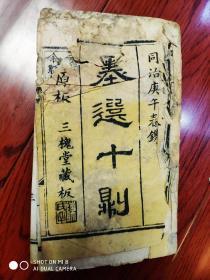 同治庚午春鐫
墨選十剔
原板
三槐堂藏板
SHOT ON MI 8
AI DUAL CAMERA